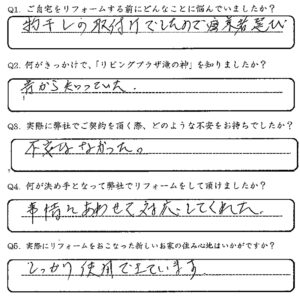 Q1. ご自宅をリフォームする前にどんなことに悩んでいましたか？
物干しの取付けでしたので業者選び
Q2. 何がきっかけで、「リビングプラザ滝の神」を知りましたか？
昔から知っていた。
Q3. 実際に弊社でご契約を頂く際、どのような不安をお持ちでしたか？
不安はなかった。
Q4. 何が決め手となって弊社でリフォームをして頂けましたか？
事情にあわせて対応してくれた。
Q5. 実際にリフォームをおこなわった新しいお家の住み心地はいかがですか？
しっかり使用できています。